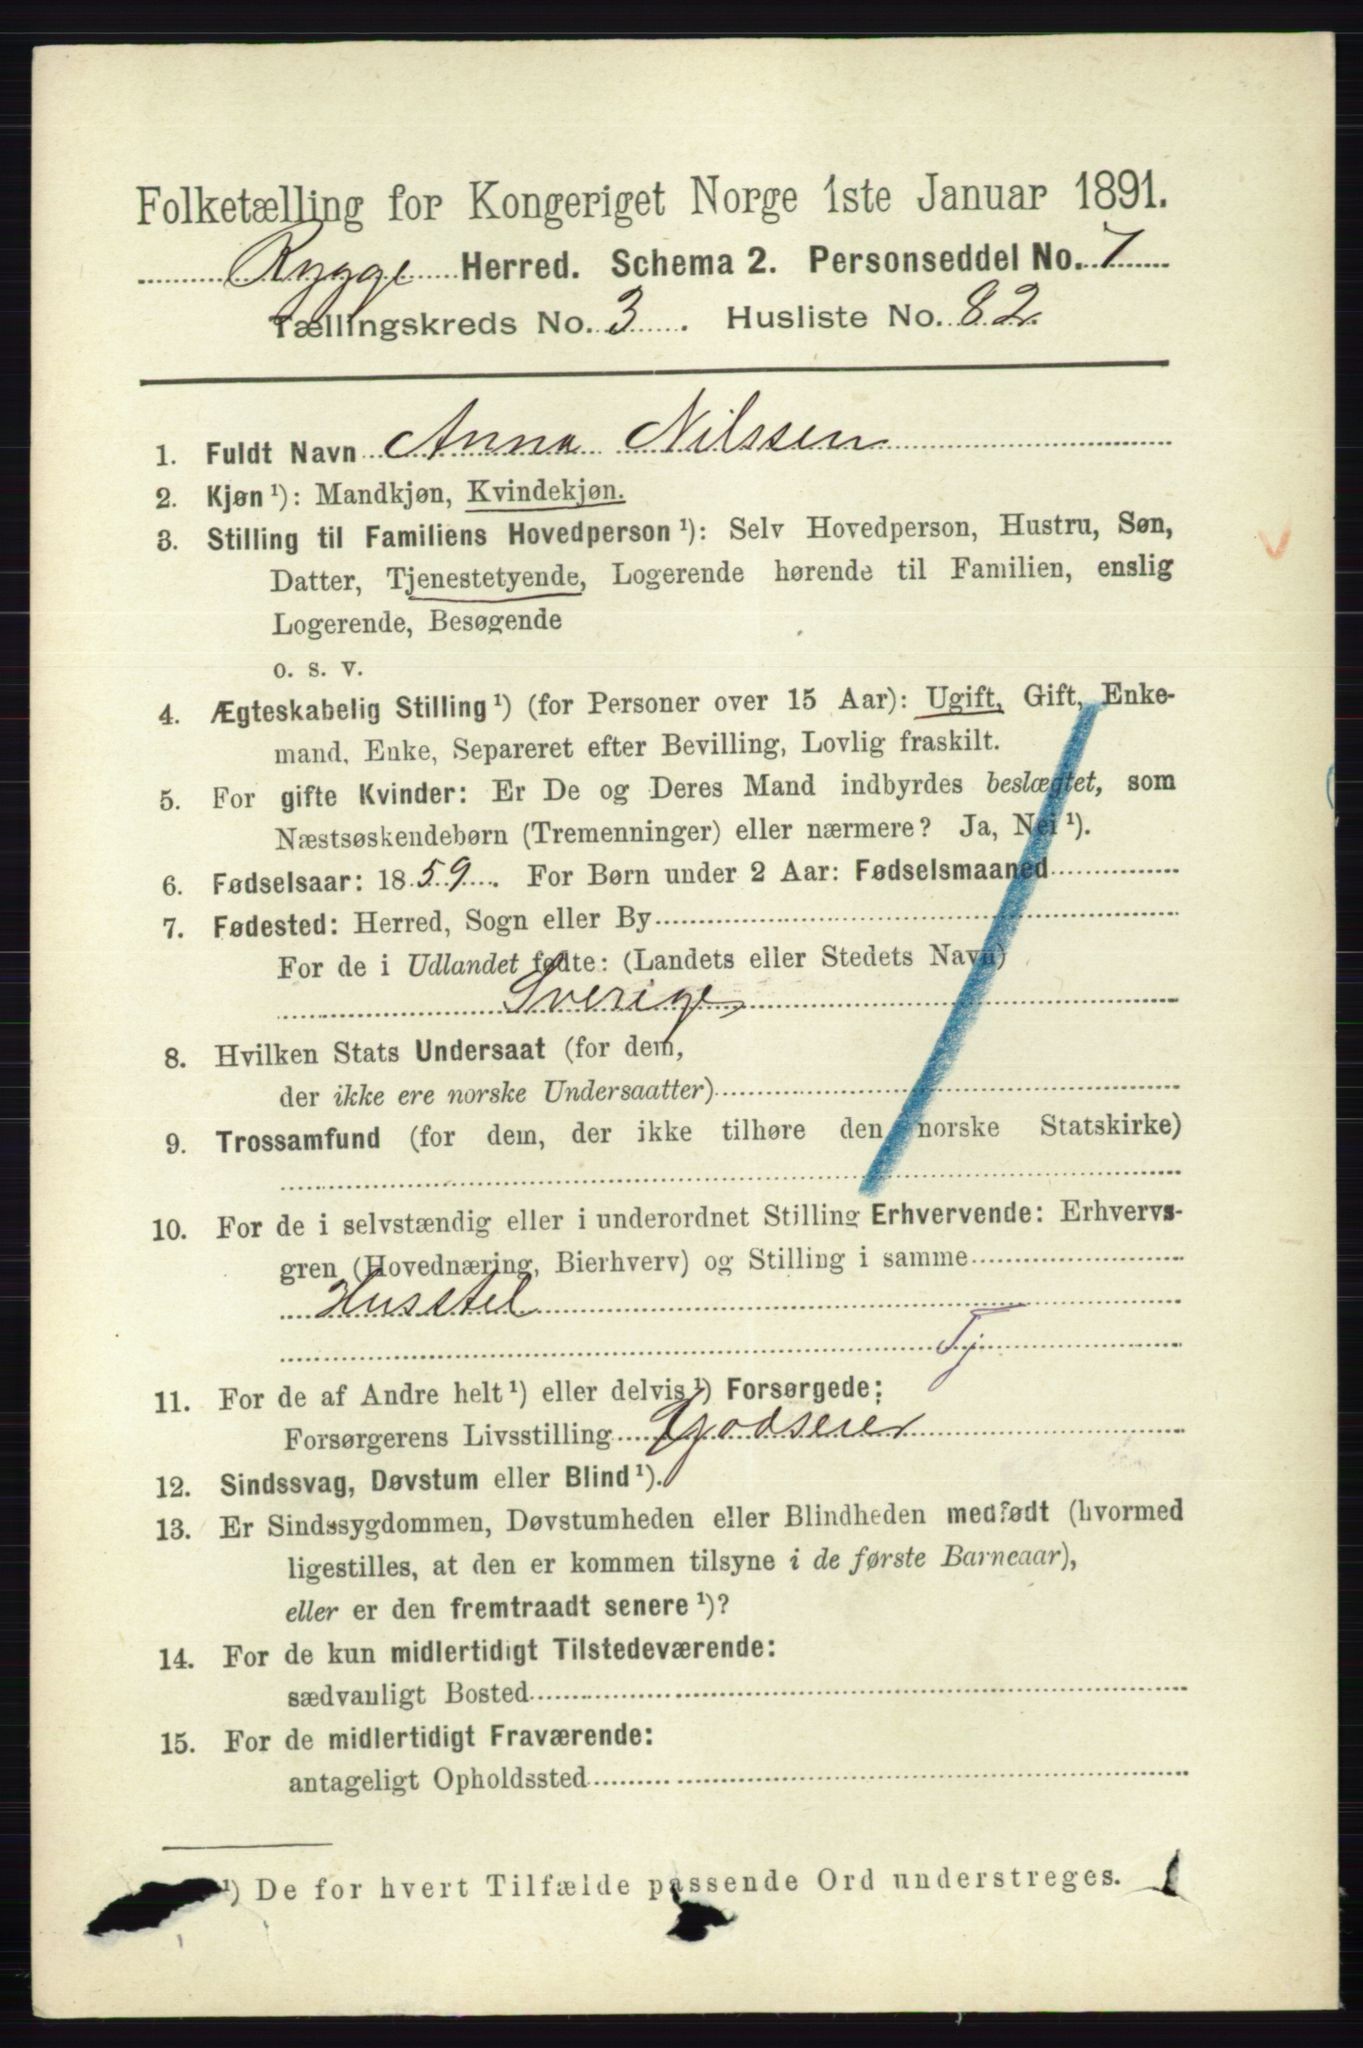 Folketælling for Kongeriget Norge 1ste Januar 1891.
Rygge Herred. Schema 2. Personseddel No. 7
Tællingskreds No. 3. Husliste No. 82.
1. Fuldt Navn Anna Nilssen
2. Kjøn ¹): Mandkjøn, Kvindekjøn.
3. Stilling til Familiens Hovedperson ¹): Selv Hovedperson, Hustru, Søn,
Datter, Tjenestetyende, Logerende hørende til Familien, enslig
Logerende, Besøgende
o. s. v.
4. Ægteskabelig Stilling ¹) (for Personer over 15 Aar): Ugift, Gift, Enke-
mand, Enke, Separeret efter Bevilling, Lovlig fraskilt.
5. For gifte Kvinder: Er De og Deres Mand indbyrdes beslægtet, som
Næstsøskendebørn (Tremenninger) eller nærmere? Ja, Nei ¹).
6. Fødselsaar: 1859. For Børn under 2 Aar: Fødselsmaaned
7. Fødested: Herred, Sogn eller By
For de i Udlandet fødte: (Landets eller Stedets Navn)
Sverige
8. Hvilken Stats Undersaat (for dem,
der ikke ere norske Undersaatter)
9. Trossamfund (for dem, der ikke tilhøre den norske Statskirke)
10. For de i selvstændig eller i underordnet Stilling Erhvervende: Erhvervs-
gren (Hovednæring, Bierhverv) og Stilling i samme
Husstel
Tj
11. For de af Andre helt ¹) eller delvis ¹) Forsørgede:
Forsørgerens Livsstilling Godseier
12. Sindssvag, Døvstum eller Blind ¹).
13. Er Sindssygdommen, Døvstumheden eller Blindheden medfødt (hvormed
ligestilles, at den er kommen tilsyne i de første Barneaar),
eller er den fremtraadt senere ¹)?
14. For de kun midlertidigt Tilstedeværende:
sædvanligt Bosted
15. For de midlertidigt Fraværende:
antageligt Opholdssted
¹) De for hvert Tilfælde passende Ord understreges.